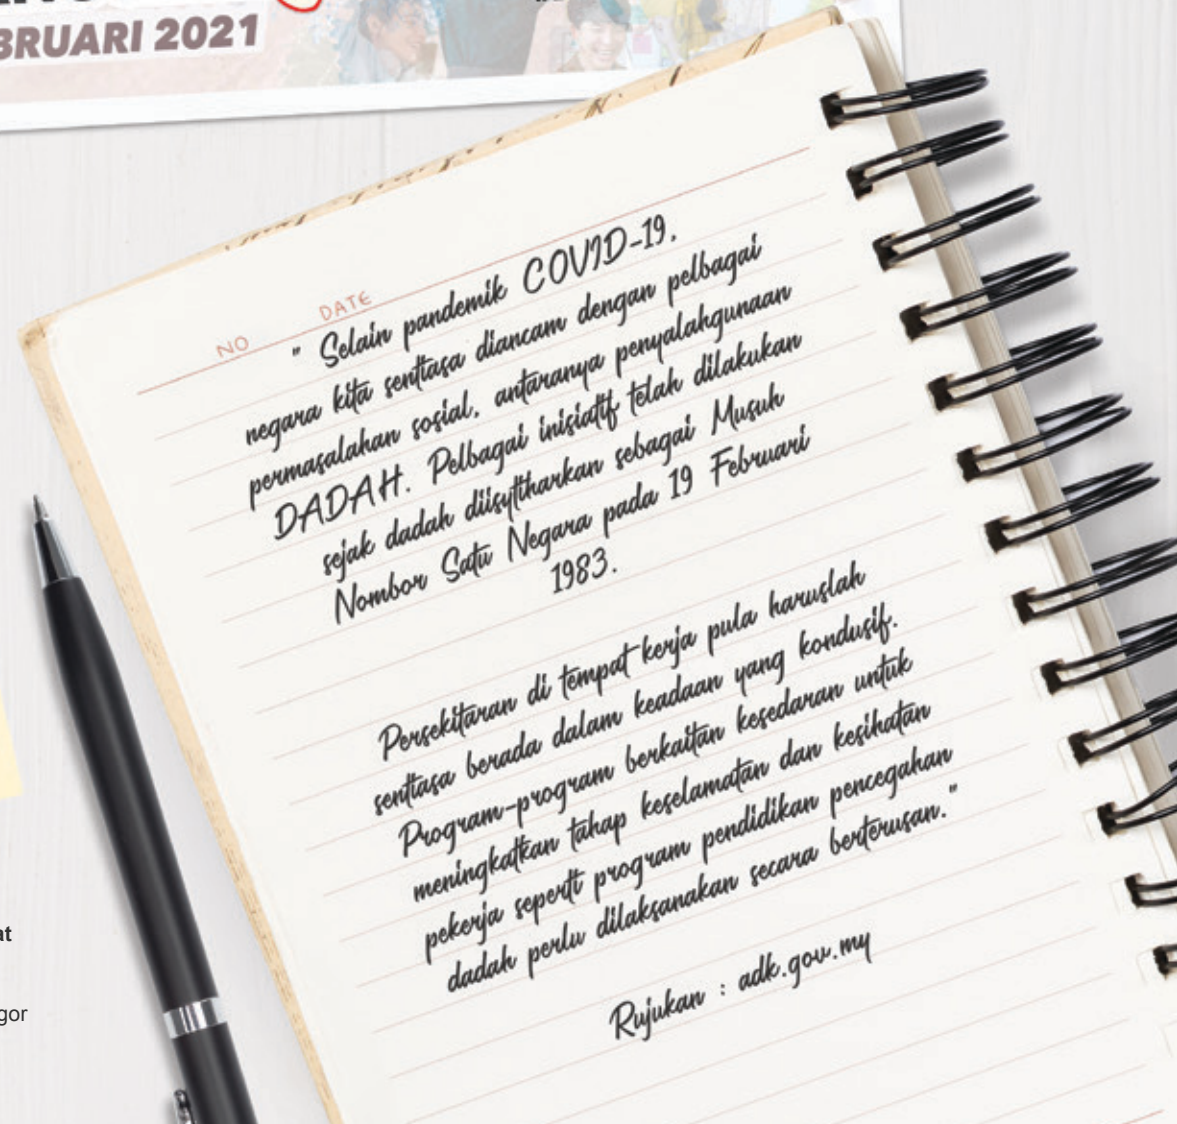 BRUARI 2021
NO
DATE
" Selain pandemik COVID-19,
negara kita sentiasa diancam dengan pelbagai
permasalahan sosial, antaranya penyalahgunaan
DADAH. Pelbagai inisiatif telah dilakukan
sejak dadah diisytiharkan sebagai Musuh
Nombor Satu Negara pada 19 Februari
1983.
Persekitaran di tempat kerja pula haruslah
sentiasa berada dalam keadaan yang kondusif.
Program-program berkaitan kesedaran untuk
meningkatkan tahap keselamatan dan kesihatan
pekerja seperti program pendidikan pencegahan
dadah perlu dilaksanakan secara berterusan."
Rujukan : adk.gov.my
at
gor